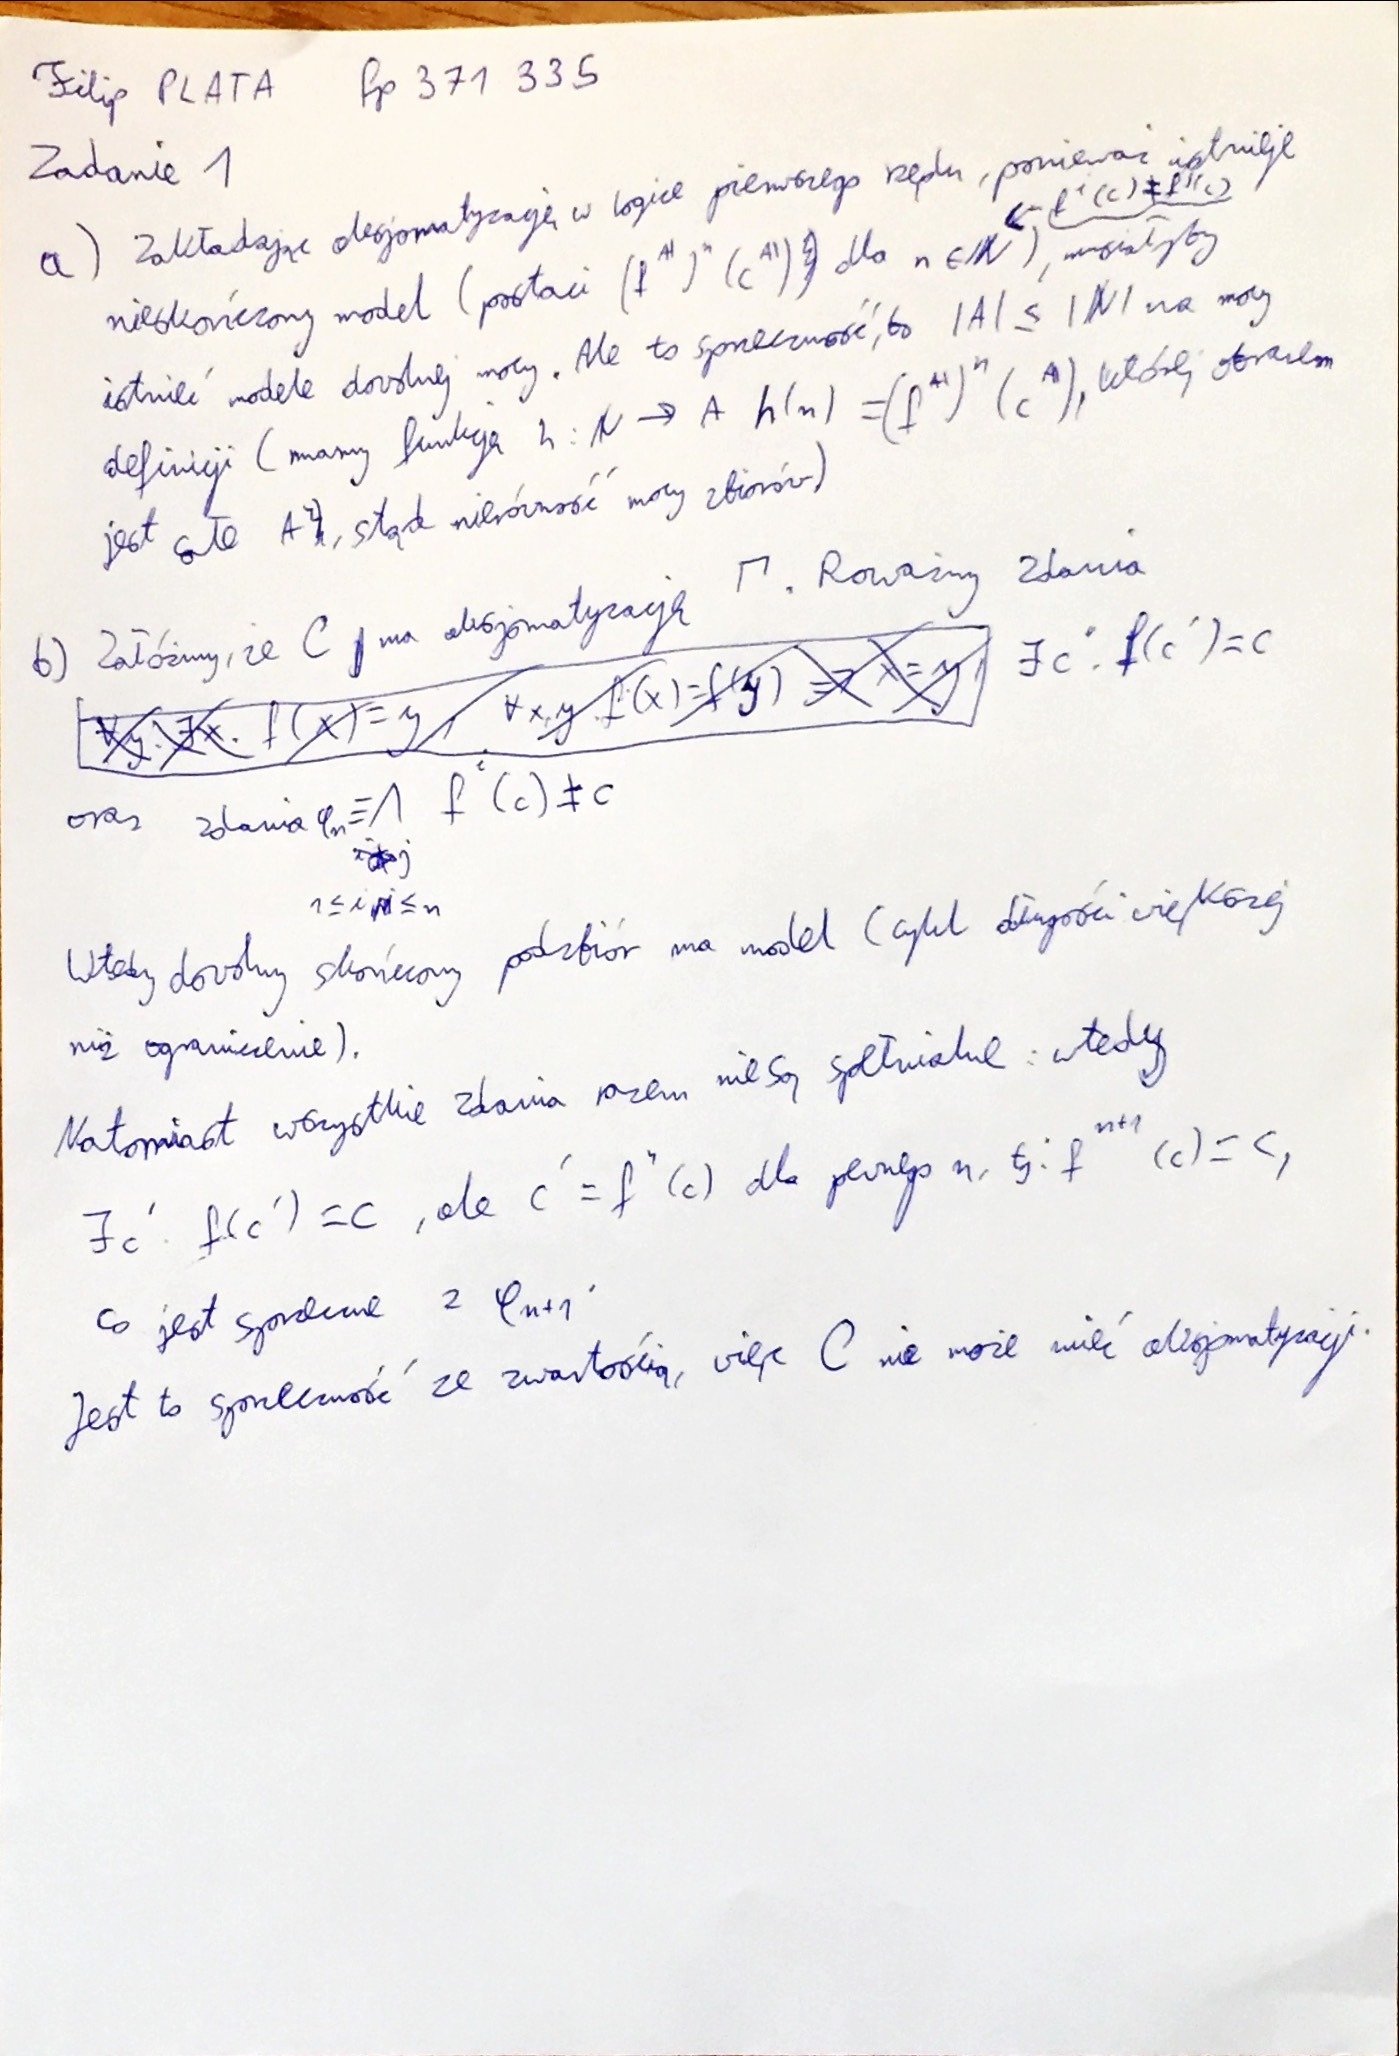 Filip PLATA fp 371 335
Zadanie 1
a) Zakładając aksjomatyzację w logice pierwszego rzędu, ponieważ istnieje
f^i(c) ≠ f^j(c)
nieskończony model (postaci (f^𝔸)^n (c^𝔸) dla n ∈ ℕ), musiałyby
istnieć modele dowolnej mocy. Ale to sprzeczność, bo |A| ≤ |ℕ| na mocy
definicji (mamy funkcję h: ℕ → A h(n) = (f^𝔸)^n (c^𝔸), której obrazem
jest całe A, stąd nierówność mocy zbiorów)
b) Załóżmy, że C ma aksjomatyzację Γ. Rozważmy zdania
∀y. ∃x. f(x) = y, ∀x,y. f(x) = f(y) ⇒ x = y, ∃c'. f(c') = c
oraz zdania φ_n ≡ ⋀ f^i(c) ≠ c
1 ≤ i ≤ n
Wtedy dowolny skończony podzbiór ma model (cykl długości większej
niż ograniczenie).
Natomiast wszystkie zdania razem nie są spełnialne: wtedy
∃c'. f(c') = c, ale c' = f^n(c) dla pewnego n, tj: f^{n+1}(c) = c,
co jest sprzeczne z φ_{n+1}.
Jest to sprzeczność ze zwartością, więc C nie może mieć aksjomatyzacji.